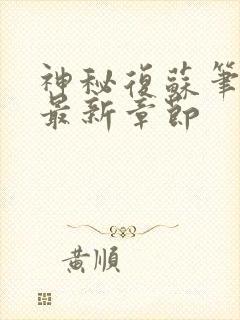 神秘復蘇筆
最新章節
黃順